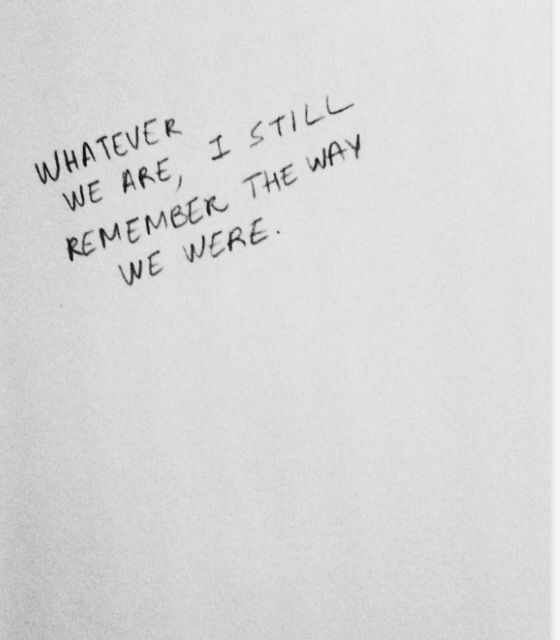 WHATEVER
WE ARE, I STILL
REMEMBER THE WAY
WE WERE.